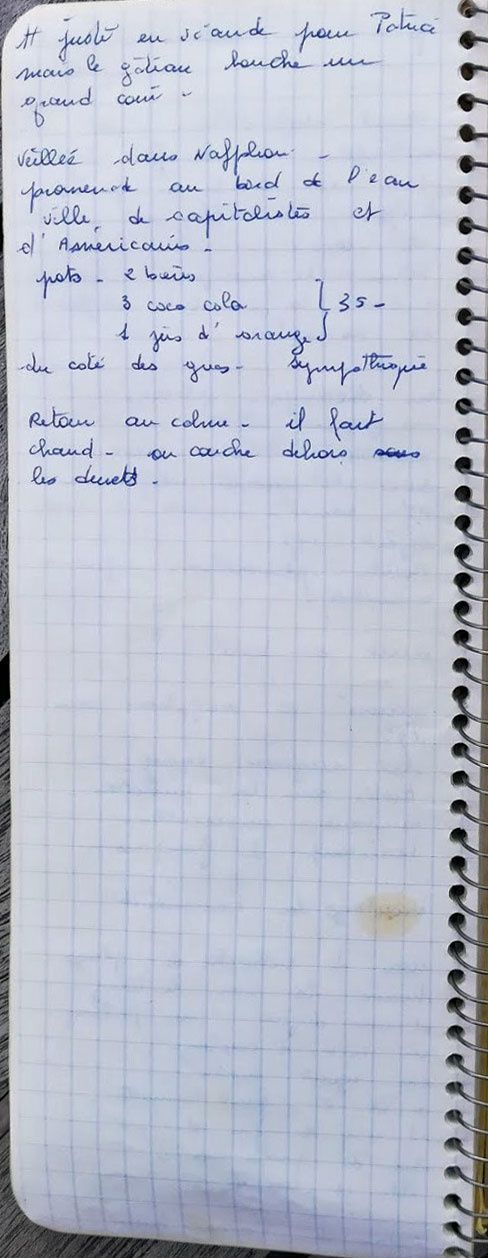 juste en viande pour Patrice
mais le gâteau bouche un
grand coin -
Veillée dans Nafplion -
promenade au bord de l'eau
ville de capitalistes et
d'Américains -
pots - 2 bières
3 coco cola [ 35 -
1 jus d'orange
du coté des grecs - sympathique
Retour au calme - il fait
chaud - on couche dehors sous
les duvets -